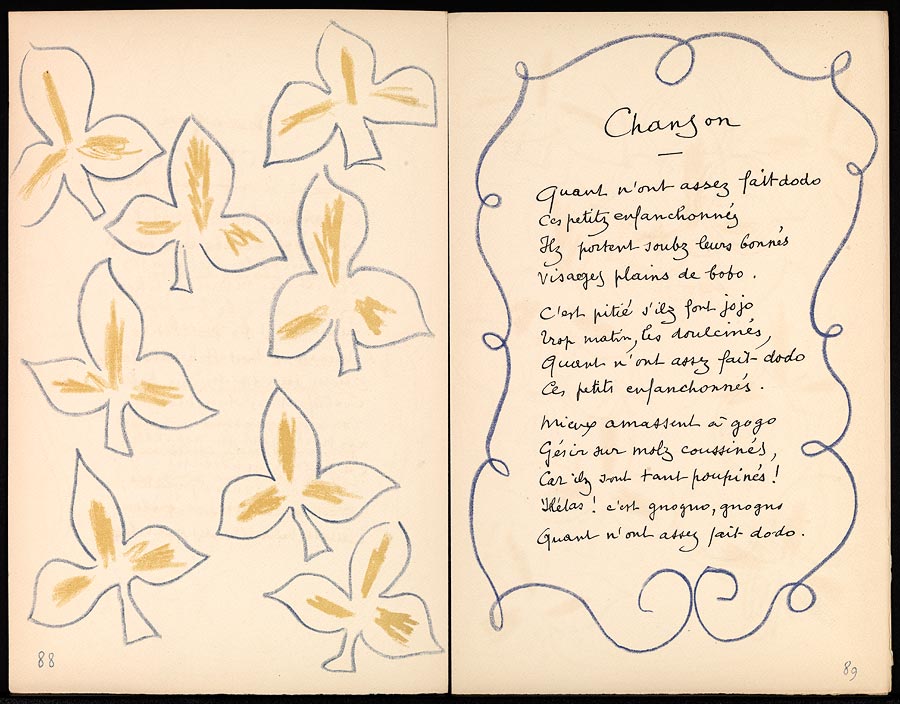 88
Chanson
Quant n'ont assez fait dodo
Ces petitz enfanchonnés
Ilz portent soubz leurs bonnés
Visages plains de bobo.
C'est pitié s'ilz font jojo
Trop matin, les doulcinés,
Quant n'ont assez fait-dodo
Ces petits enfanchonnés.
Mieux amassent à gogo
Gésir sur molz coussinés,
Car ilz sont tant poupinés!
Hélas! c'est gnogno, gnogno
Quant n'ont assez fait dodo.
89